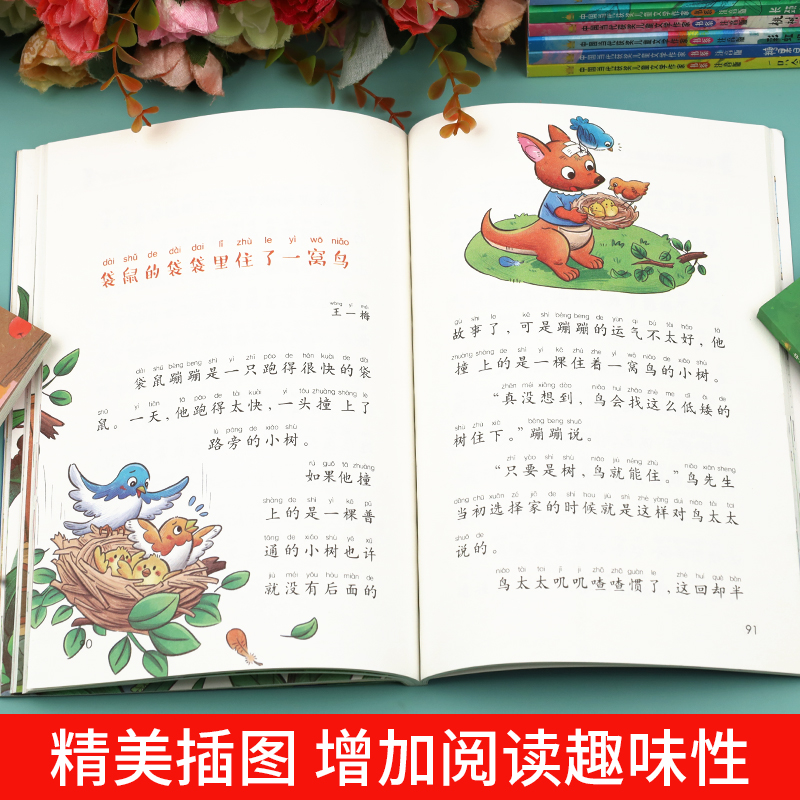 中国当代获奖儿童文学作家
中国当代获奖儿童文学作家
中国当代获奖儿童文学作家
中国当代获奖儿童文学作家
dài shǔ de dài dai lǐ zhù le yì wō niǎo
袋鼠的袋袋里住了一窝鸟
wáng yì méi
王一梅
dài shǔ bèng bèng shì yì zhī pǎo de hěn kuài de dài
袋鼠蹦蹦是一只跑得很快的袋
shǔ yì tiān tā pǎo de tài kuài yì tóu zhuàng shàng le
鼠。一天，他跑得太快，一头撞上了
lù páng de xiǎo shù
路旁的小树。
rú guǒ tā zhuàng
如果他撞
shàng de shì yì kē pǔ
上的是一棵普
tōng de xiǎo shù yě xǔ
通的小树也许
jiù méi yǒu hòu miàn de
就没有后面的
90
gù shi le kě shì bèng beng de yùn qi bú tài hǎo tā
故事了，可是蹦蹦的运气不太好，他
zhuàng shàng de shì yì kē zhù zhe yì wō niǎo de xiǎo shù
撞上的是一棵住着一窝鸟的小树。
zhēn méi xiǎng dào niǎo huì zhǎo zhè me dī ǎi de
“真没想到，鸟会找这么低矮的
shù zhù xià bèng beng shuō
树住下。”蹦蹦说。
zhǐ yào shì shù niǎo jiù néng zhù niǎo xiān sheng
“只要是树，鸟就能住。”鸟先生
dāng chū xuǎn zé jiā de shí hou jiù shì zhè yàng duì niǎo tài tai
当初选择家的时候就是这样对鸟太太
shuō de
说的。
niǎo tài tai jī jī zhā zhā guàn le zhè huí què bàn
鸟太太叽叽喳喳惯了，这回却半
91
精美插图 增加阅读趣味性